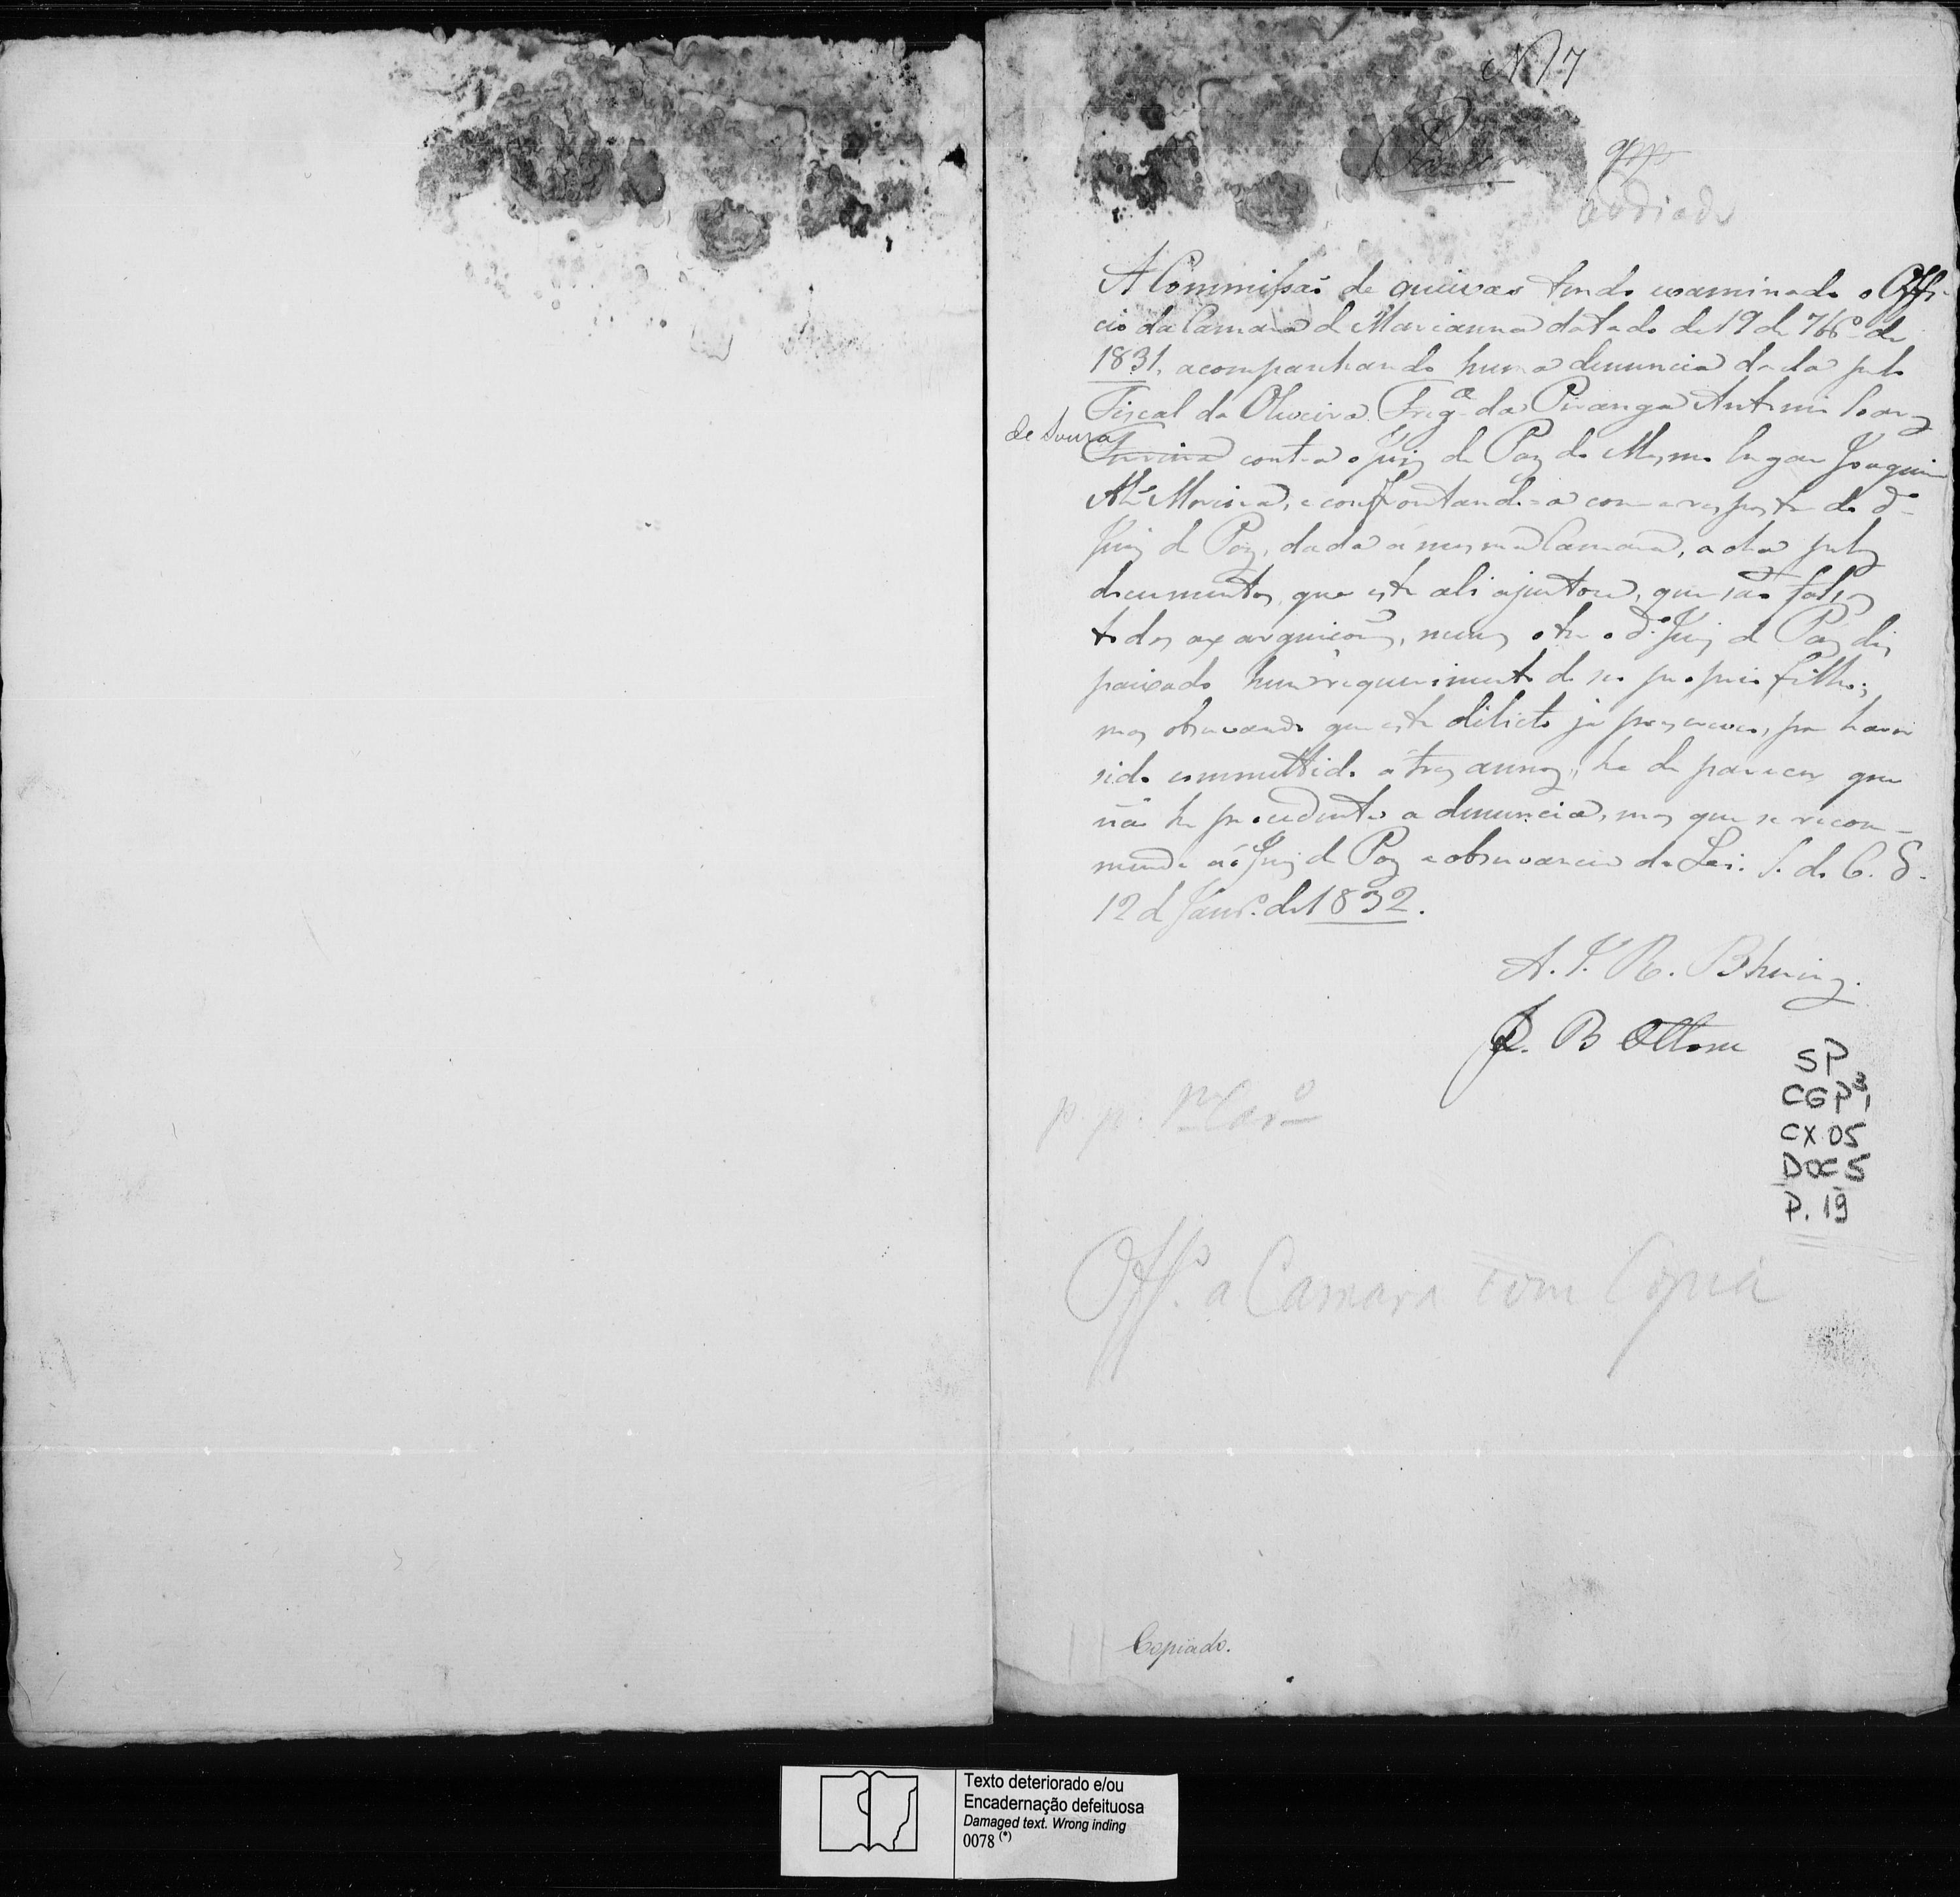 N 7
A Commissão de queixas tendo examinado o Offi-
cio da Camara de Marianna datado de 19 de 7br.o de
1831, acompanhando huma denuncia dada pelo
Fiscal da Oliveira Freg.a da Piranga Antonio Soares
de Souza
contra o Juiz de Paz do Mesmo lugar Joaquim
Al.s Moreira, e confrontando-a com a resposta do d.o
Juiz de Paz, dada á mesma Camara, acha pelos
documentos, que este ali ajuntou, que são falsas
todas as arguiçoens, menos o ter o d.o Juiz de Paz des
paixado hum requerimento de seo proprio filho;
mas observando que este delicto já prescreveo, por haver
sido commettido á tres annos, he de parecer que
não he procedente a denuncia, mas que se recom-
mende aó Juiz de Paz a observancia da Lei. S. do C. G.
12 de Janr.o de 1832.
A. J. R. Bhering.
J. B Ottoni
SP
CGP3,
CX 05
DOC 5
P. 19
Off.o a Camara com Copia
Copiado.
Texto deteriorado e/ou
Encadernação defeituosa
Damaged text. Wrong inding
0078 (*)